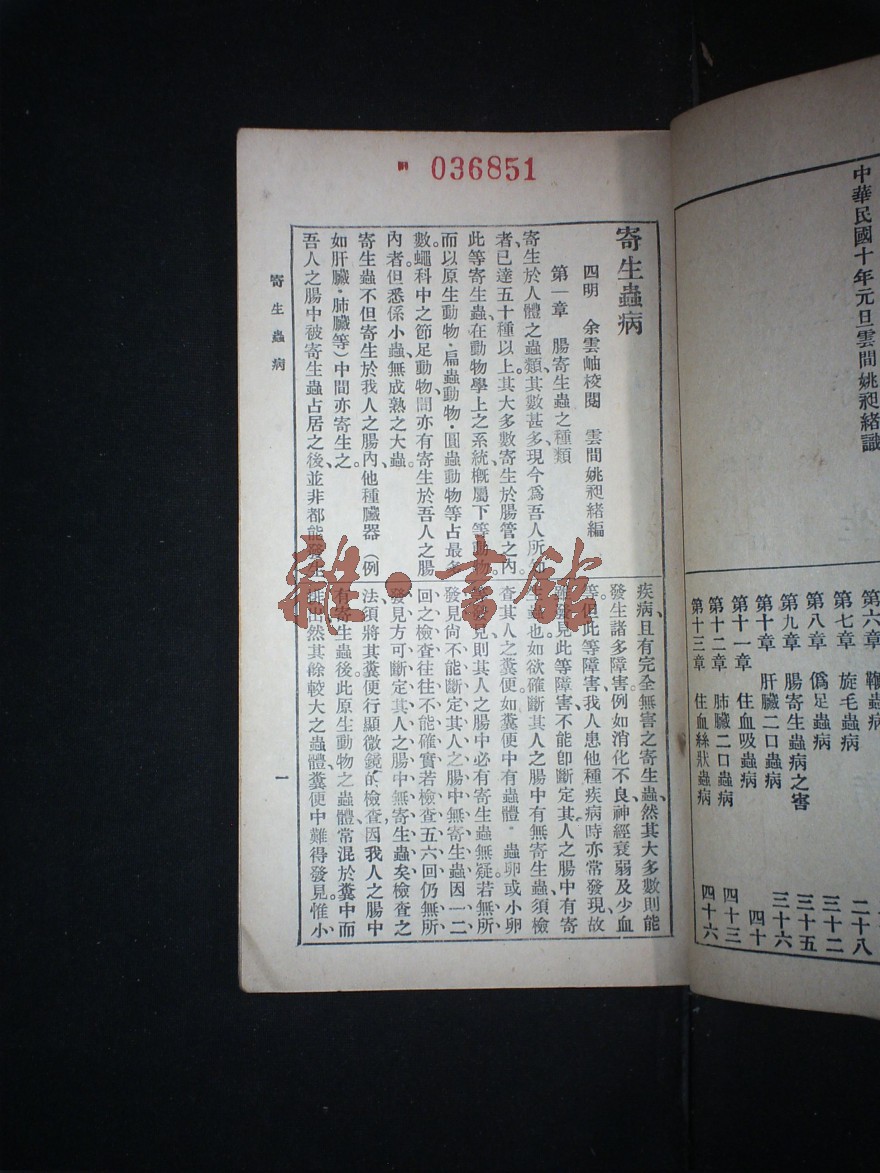 中華民國十年元旦雲間姚昶緒識
第六章 鞭蟲病
第七章 旋毛蟲病 二十八
第八章 僞足蟲病 三十二
第九章 腸寄生蟲病之害 三十五
第十章 肝臟二口蟲病 三十六
第十一章 住血吸蟲病 四十
第十二章 肺臟二口蟲病 四十三
第十三章 住血絲狀蟲病 四十六
036851
寄生蟲病
四明 余雲岫校閱 雲間姚昶緒編
第一章 腸寄生蟲之種類
寄生於人體之蟲類、其數甚多、現今爲吾人所知
者、已達五十種以上。其大多數寄生於腸管之內。
此等寄生蟲、在動物學上之系統、概屬下等動物。
而以原生動物・扁蟲動物・圓蟲動物等占最多
數。蠅科中之節足動物、間亦有寄生於吾人之腸
內者。但悉係小蟲、無成熟之大蟲。
寄生蟲不但寄生於我人之腸內、他種臟器(例
如肝臟・肺臟等)中間亦寄生之。
吾人之腸中被寄生蟲占居之後、並非都能發生
疾病、且有完全無害之寄生蟲、然其大多數則能
發生諸多障害。例如消化不良、神經衰弱及少血
等。但此等障害、我人患他種疾病時亦常發現。故
雖發見此等障害、不能卽斷定其人之腸中有寄
生蟲也。如欲確斷其人之腸中有無寄生蟲、須檢
查其人之糞便。如糞便中有蟲體・蟲卵或小卵
等發見、則其人之腸中必有寄生蟲無疑。若無所
發見、尚不能斷定其人之腸中無寄生蟲、因一二
回之檢查、往往不能確實、若檢查五六回、仍無所
發見、方可斷定其人之腸中無寄生蟲矣。檢查之
法、須將其糞便行顯微鏡的檢查、因我人之腸中
有寄生蟲後、此原生動物之蟲體、常混於糞中而
排出。然其餘較大之蟲體、糞便中難得發見。惟小
寄生蟲病
一
雜・書館